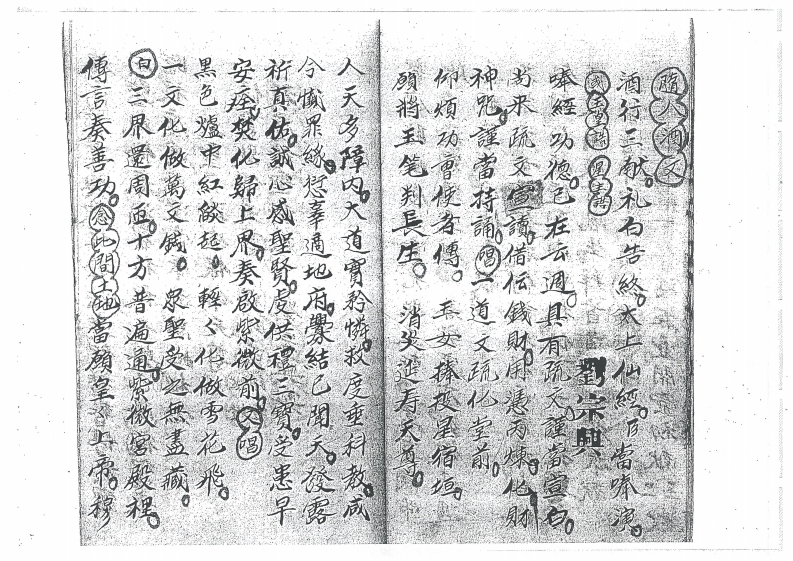 隨人酒文
酒行三献。礼白告終。太上仙經。乃當啉演。
啉經功德。已在云週。具有疏文。謹當宣白。
尚來疏文宣讀。借伝錢財。用憑丙煉化財
神咒。謹當持誦。唱一道文疏化堂前。
仰煩功曹使者傳。玉女捧投星宿垣。
願將玉笔判長生。消災進寿天尊。
劉宗興
人天多障。内大道寳矜憐。救度垂科教。咸
令懺罪緣。愆辜通地府。釁結已聞天。發露
祈真佑。誠心感聖賢。虔供禮三寳。受患早
安痊。焚化歸上界。奏啟紫微前。又唱
黑色爐中紅燄起。輕々化做雪花飛。
一文化做萬文錢。众聖受之無盡藏。
白三界還周匝。十方普遍通。紫微宮殿裡。
傳言奏善功。念此間土地當願皇々上帝。穆